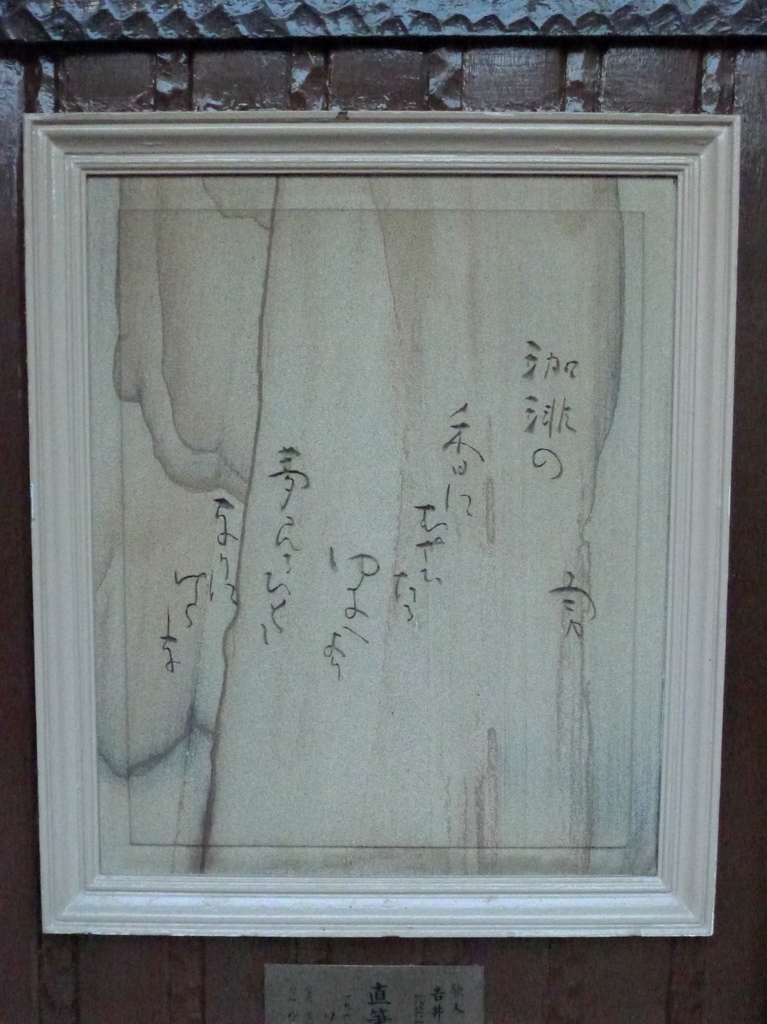 珈琲の
勇
香に
むせひたる
ゆふへ
より
夢見るひとと
なりに
けらし
な
歌人
吉井
直筆